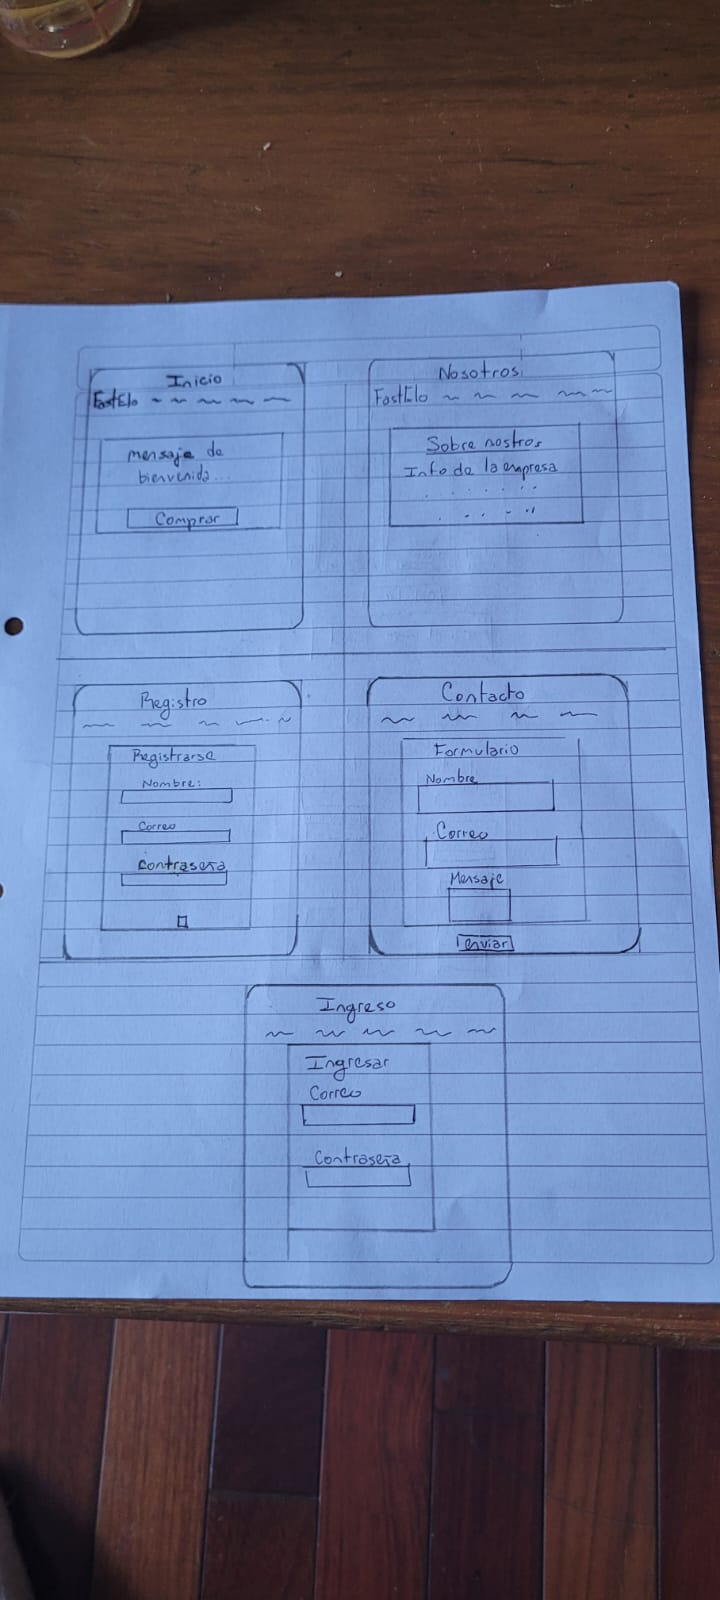 Inicio
FastElo
mensaje de
bienvenida...
Comprar
Nosotros
FastElo
Sobre nostros
Info de la empresa
Registro
Registrarse
Nombre:
Correo
Contraseña
Contacto
Formulario
Nombre
Correo
Mensaje
enviar
Ingreso
Ingresar
Correo
Contraseña